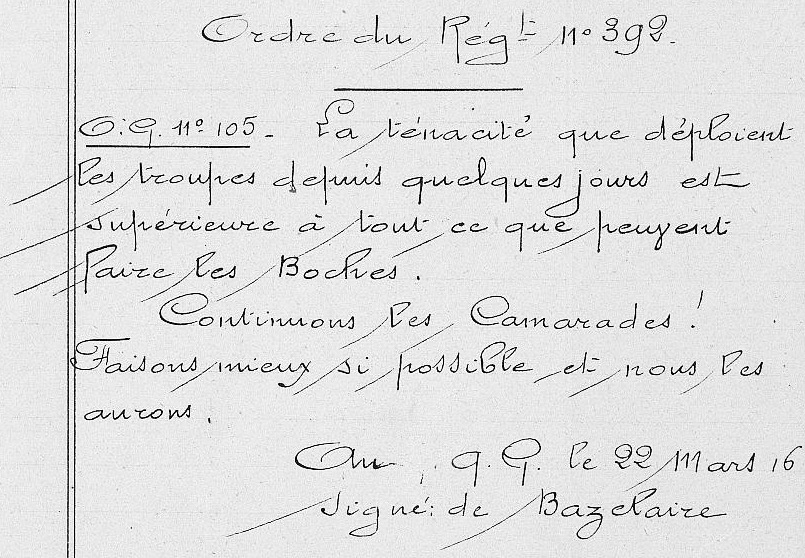 Ordre du Régt n° 392.
O.G. n° 105 - La ténacité que déploient
les troupes depuis quelques jours est
supérieure à tout ce que peuvent
faire les Boches.
Continuons les Camarades !
Faisons mieux si possible et nous les
aurons.
Au Q.G. le 22 Mars 16
Signé : de Bazelaire